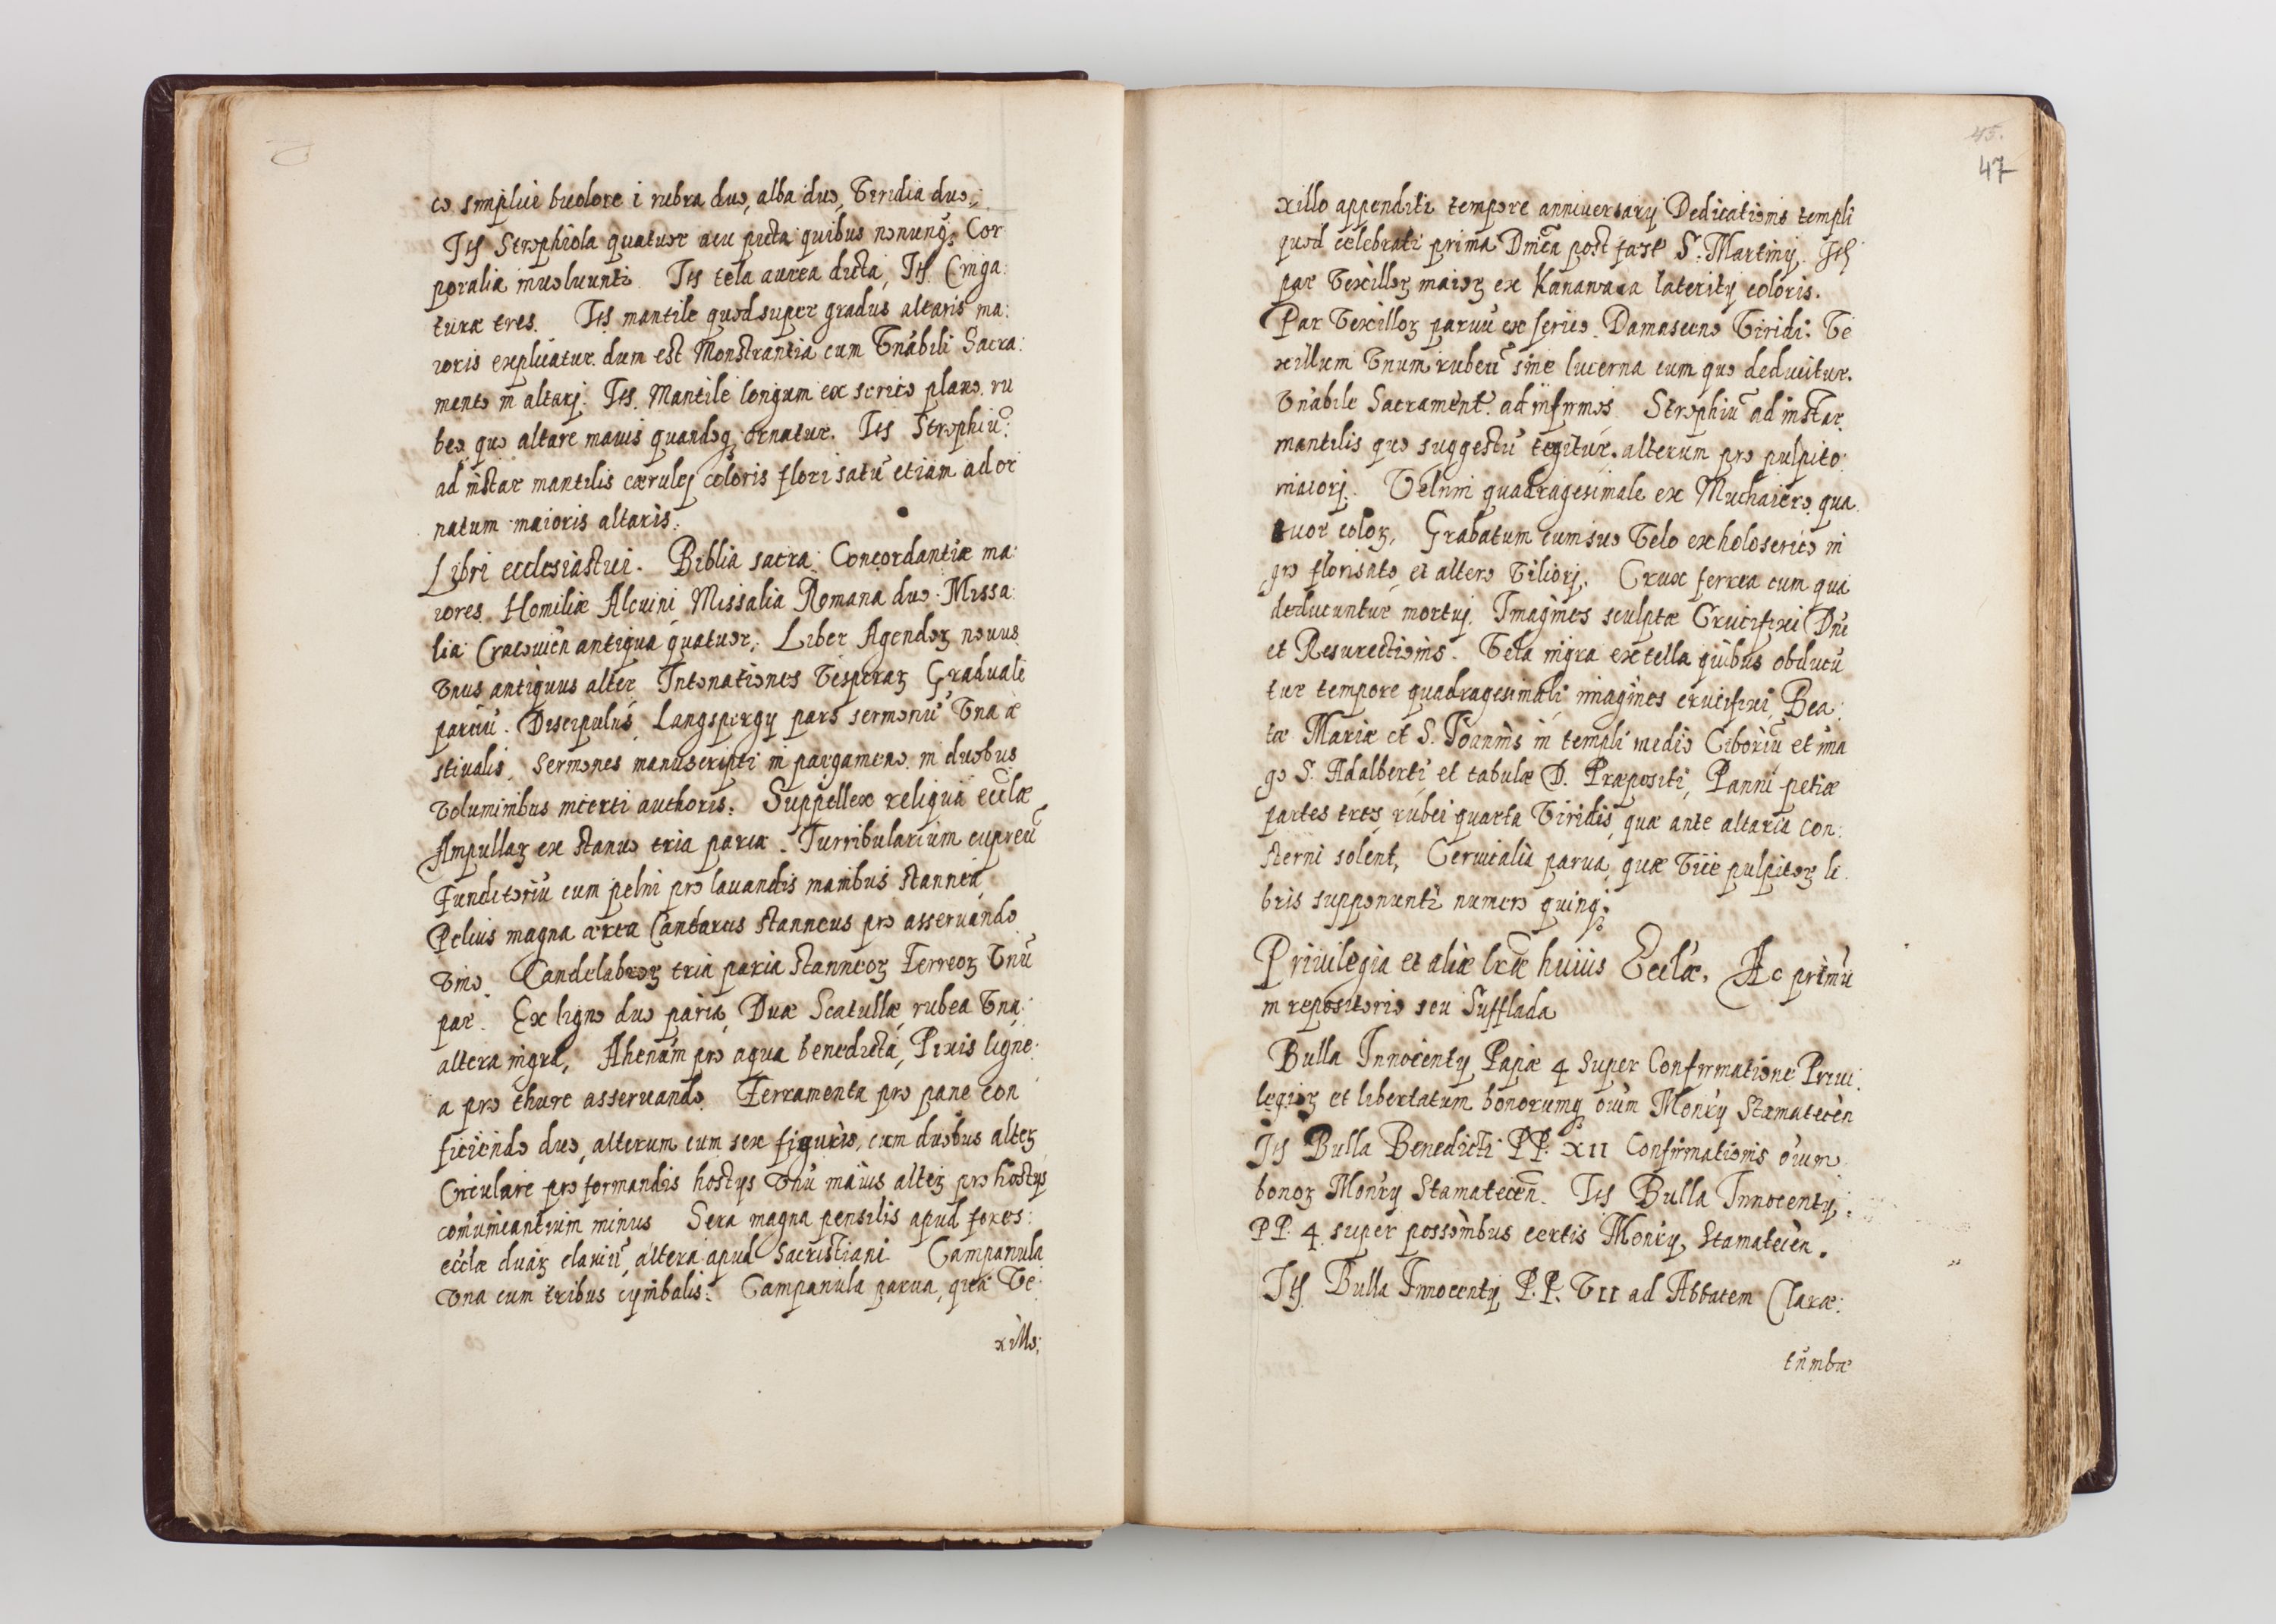 co simplici bicolore i rubra duo, alba duo, Viridia duo,
Itẽ Strophiola quatuor acu picta quibus nonnunq̃ Cor
poralia inuoluuntꝛ. Itẽ tela aurea dicta, Itẽ. Cinga:
turæ tres. Itẽ mantile quod super gradus altaris ma:
ioris explicatur dum est Monstrantia cum Vnābili Sacra:
mento in altarj. Itẽ. Mantile longum ex serico plano. ru
beo quo altare maius quandoq; ornatur. Itẽ Strophiũ:
ad instar mantilis cærulej coloris florisatũ etiam ad or
natum maioris altaris.
Libri ecclesiastici. Biblia sacra. Concordantiæ ma:
iores. Homiliæ Alcuini Missalia Romana duo. Missa:
lia Cracouien̄ antiqua quatuor, Liber Agendoꝝ nouus
Vnus antiquus alter Intonationes Vesperaꝝ Graduale
paruũ. Discipulus, Langspergij pars sermonũ Vna æ
stiualis, Sermones manuscripti in pargameno. in duobus
Voluminibus incerti authoris. Suppellex reliqua eccl̃æ
Ampullaꝝ ex stanno tria paria. Turribularium cupreũ
Funditoriũ cum pelui pro lauandis manibus stannea
Peluis magna ærea Cantarus stanneus pro asseruando
Vino. Candelabroꝝ tria paria stanneoꝝ Ferreoꝝ Vnũ
par. Ex ligno duo paria, Duæ Scatullæ, rubea Vna:
altera nigra, Ahenum pro aqua benedicta, Pixis ligne:
a pro thure asseruando. Ferramenta pro pane con
ficiendo duo, alterum cum sex figuris, cum duobus alteꝝ
Circulare pro formandis hostijs Vnũ maius alteꝝ pro hostijs
com̃unicantium minus Sera magna pensilis apud fores:
eccl̃æ duaꝝ clauiũ, altera apud Sacristiam Campanula
Vna cum tribus cymbalis. Campanula parua, quæ Ve:
xillo:
45.
47
xillo appenditꝛ tempore anniuersarij Dedicationis templi
quod celebratꝛ prima Dnĩca post fest S. Martini. Itẽ
par Vexilloꝝ maioꝝ ex Kanawaca lateritij coloris.
Par Vexilloꝝ paruũ ex serico Damasceno Viridi. Ve
xillum Vnum rubeũ sine lucerna cum quo deducitur.
Vnābile Sacrament. ad infirmos. Strophiũ ad instar
mantilis quo suggestũ tegitur. alterum pro pulpito
maiorj. Velum quadragesimale ex Muchaiero qua
tuor coloꝝ. Grabatum cum suo Velo ex holoserico ni
gro florisato et altero Viliorj. Crux ferrea cum qua
deducuntur mortuj. Imagines sculptæ Crucifixi Dñi
et Resurectionis. Vela nigra ex tella quibus obducũ
tur tempore quadragesimali imagines crucifixi, Bea:
tæ Mariæ et S. Ioannis in templi medio Ciboriũ et ima
go S. Adalberti et tabulæ D. Præpositi, Panni petiæ
partes tres rubei quarta Viridis quæ ante altaria con:
sterni solent, Ceruicalia parua, quæ Vice pulpitoꝝ li
bris supponuntꝛ numero quinq;
Priuilegia et aliæ lr̃æ huius Eccl̃æ. Ac primũ
in repositorio seu Sufflada
Bulla Innocentij Papæ 4 super Confirmatione Priui.
legioꝝ et libertatum bonorumq; oĩum Mon̄rij Stamatecen̄
Itẽ Bulla Benedicti PP. XII Confirmationis oĩum
bonoꝝ Mon̄rij Stamatecen̄. Itẽ Bulla Innocentij.
PP. 4. super possoĩnibus certis Mon̄rij Stamatecen̄.
Itẽ. Bulla Innocentij P.P. VII ad Abbatem Claræ:
tumbæ